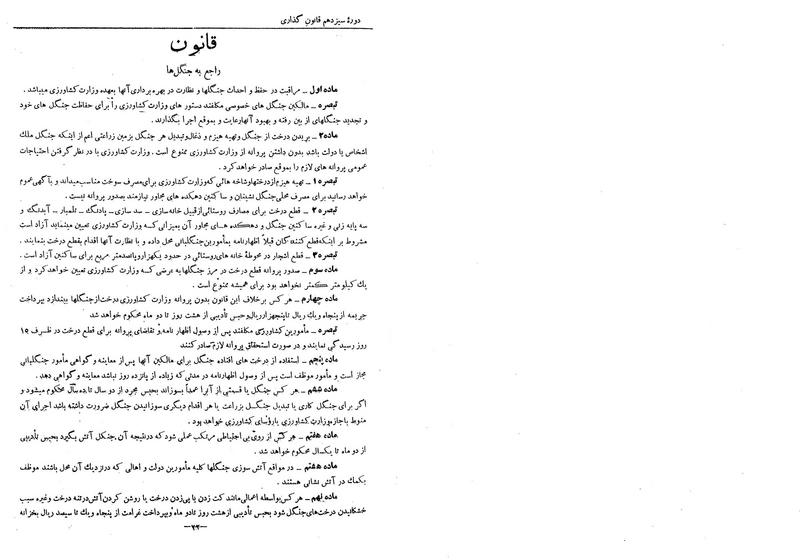 دورهٔ سیزدهم قانون گذاری
قانون
راجع به جنگل‌ها
ماده اول ـ مراقبت در حفظ و احداث جنگلها و نظارت در بهره برداری آنها بعهده وزارت کشاورزی میباشد .
تبصره ـ مالکین جنگل های خصوصی مکلفند دستور های وزارت کشاورزی را برای حفاظت جنگل های خود
و تجدید جنگلهای از بین رفته و بهبود آنها رعایت و بموقع اجرا بگذارند .
ماده ۲ ـ بریدن درخت از جنگل و تهیه هیزم و ذغال و تبدیل هر جنگل بزمین زراعتی اعم از اینکه جنگل ملك
اشخاص یا دولت باشد بدون داشتن پروانه از وزارت کشاورزی ممنوع است . وزارت کشاورزی با در نظر گرفتن احتیاجات
عمومی پروانه های لازم را بموقع صادر خواهد کرد .
تبصره ۱ ـ تهیه هیزم از درختها و شاخه هائی که وزارت کشاورزی برای مصرف سوخت مناسب میداند و با آگهی عموم
خواهد رسانید برای مصرف محلی جنگل نشینان و ساکنین دهکده های مجاور نیازمند بصدور پروانه نیست .
تبصره ۲ ـ قطع درخت برای مصارف روستائی از قبیل خانه سازی ـ سد سازی ـ پادنگ ـ تلمبار ـ آبدنگ و
سه پایه زنی و غیره ساکنین جنگل و دهکده های مجاور آن بمیزانی که وزارت کشاورزی تعیین مینماید آزاد است
مشروط بر اینکه قطع کنندگان قبلا اظهارنامه بمأمورین جنگلبانی محل داده و با نظارت آنها اقدام بقطع درخت بنمایند .
تبصره ۳ ـ قطع اشجار در محوطهٔ خانه های روستائی در حدود یکهزار و پانصد متر مربع برای ساکنین آزاد است .
ماده سوم ـ صدور پروانه قطع درخت در مرز جنگلها به عرضی که وزارت کشاورزی تعیین خواهد کرد و از
یك کیلومتر کمتر نخواهد بود برای همیشه ممنوع است .
ماده چهارم ـ هر کس برخلاف این قانون بدون پروانه وزارت کشاورزی درخت از جنگلها بیندازد بپرداخت
جریمه از پنجاه و یك ریال تا پنجهزار ریال و حبس تأدیبی از هشت روز تا دو ماه محکوم خواهد شد
تبصره ـ مأمورین کشاورزی مکلفند پس از وصول اظهار نامه و تقاضای پروانه برای قطع درخت در ظرف ۱۵
روز رسیدگی نمایند و در صورت استحقاق پروانه لازم صادر کنند
ماده پنجم ـ استفاده از درخت های افتاده جنگل برای مالکین آنها پس از معاینه و گواهی مأمور جنگلبانی
مجاز است و مأمور موظف است پس از وصول اظهارنامه در مدتی که زیاده از پانزده روز نباشد معاینه و گواهی دهد .
ماده ششم ـ هر کس جنگل یا قسمتی از آنرا عمداً بسوزاند بحبس مجرد از دو سال تا ده سال محکوم میشود و
اگر برای جنگل کاری یا تبدیل جنگل بزراعت یا هر اقدام دیگری سوزانیدن جنگل ضرورت داشته باشد اجرای آن
منوط باجازه وزارت کشاورزی یا رؤسای کشاورزی خواهد بود .
ماده هفتم ـ هر کس از روی بی احتیاطی مرتکب عملی شود که در نتیجه آن جنگل آتش بگیرد بحبس تأدیبی
از دو ماه تا یکسال محکوم خواهد شد .
ماده هشتم ـ در مواقع آتش سوزی جنگلها کلیه مأمورین دولت و اهالی که در نزدیك آن محل باشند موظف
بکمك در آتش نشانی هستند .
ماده نهم ـ هر کس بواسطه اعمالی مانند کت زدن یا پی زدن درخت یا روشن کردن آتش در تنه درخت و غیره سبب
خشکانیدن درخت های جنگل شود بحبس تأدیبی از هشت روز تا دو ماه و بپرداخت غرامت از پنجاه و یك تا سیصد ریال بخزانه